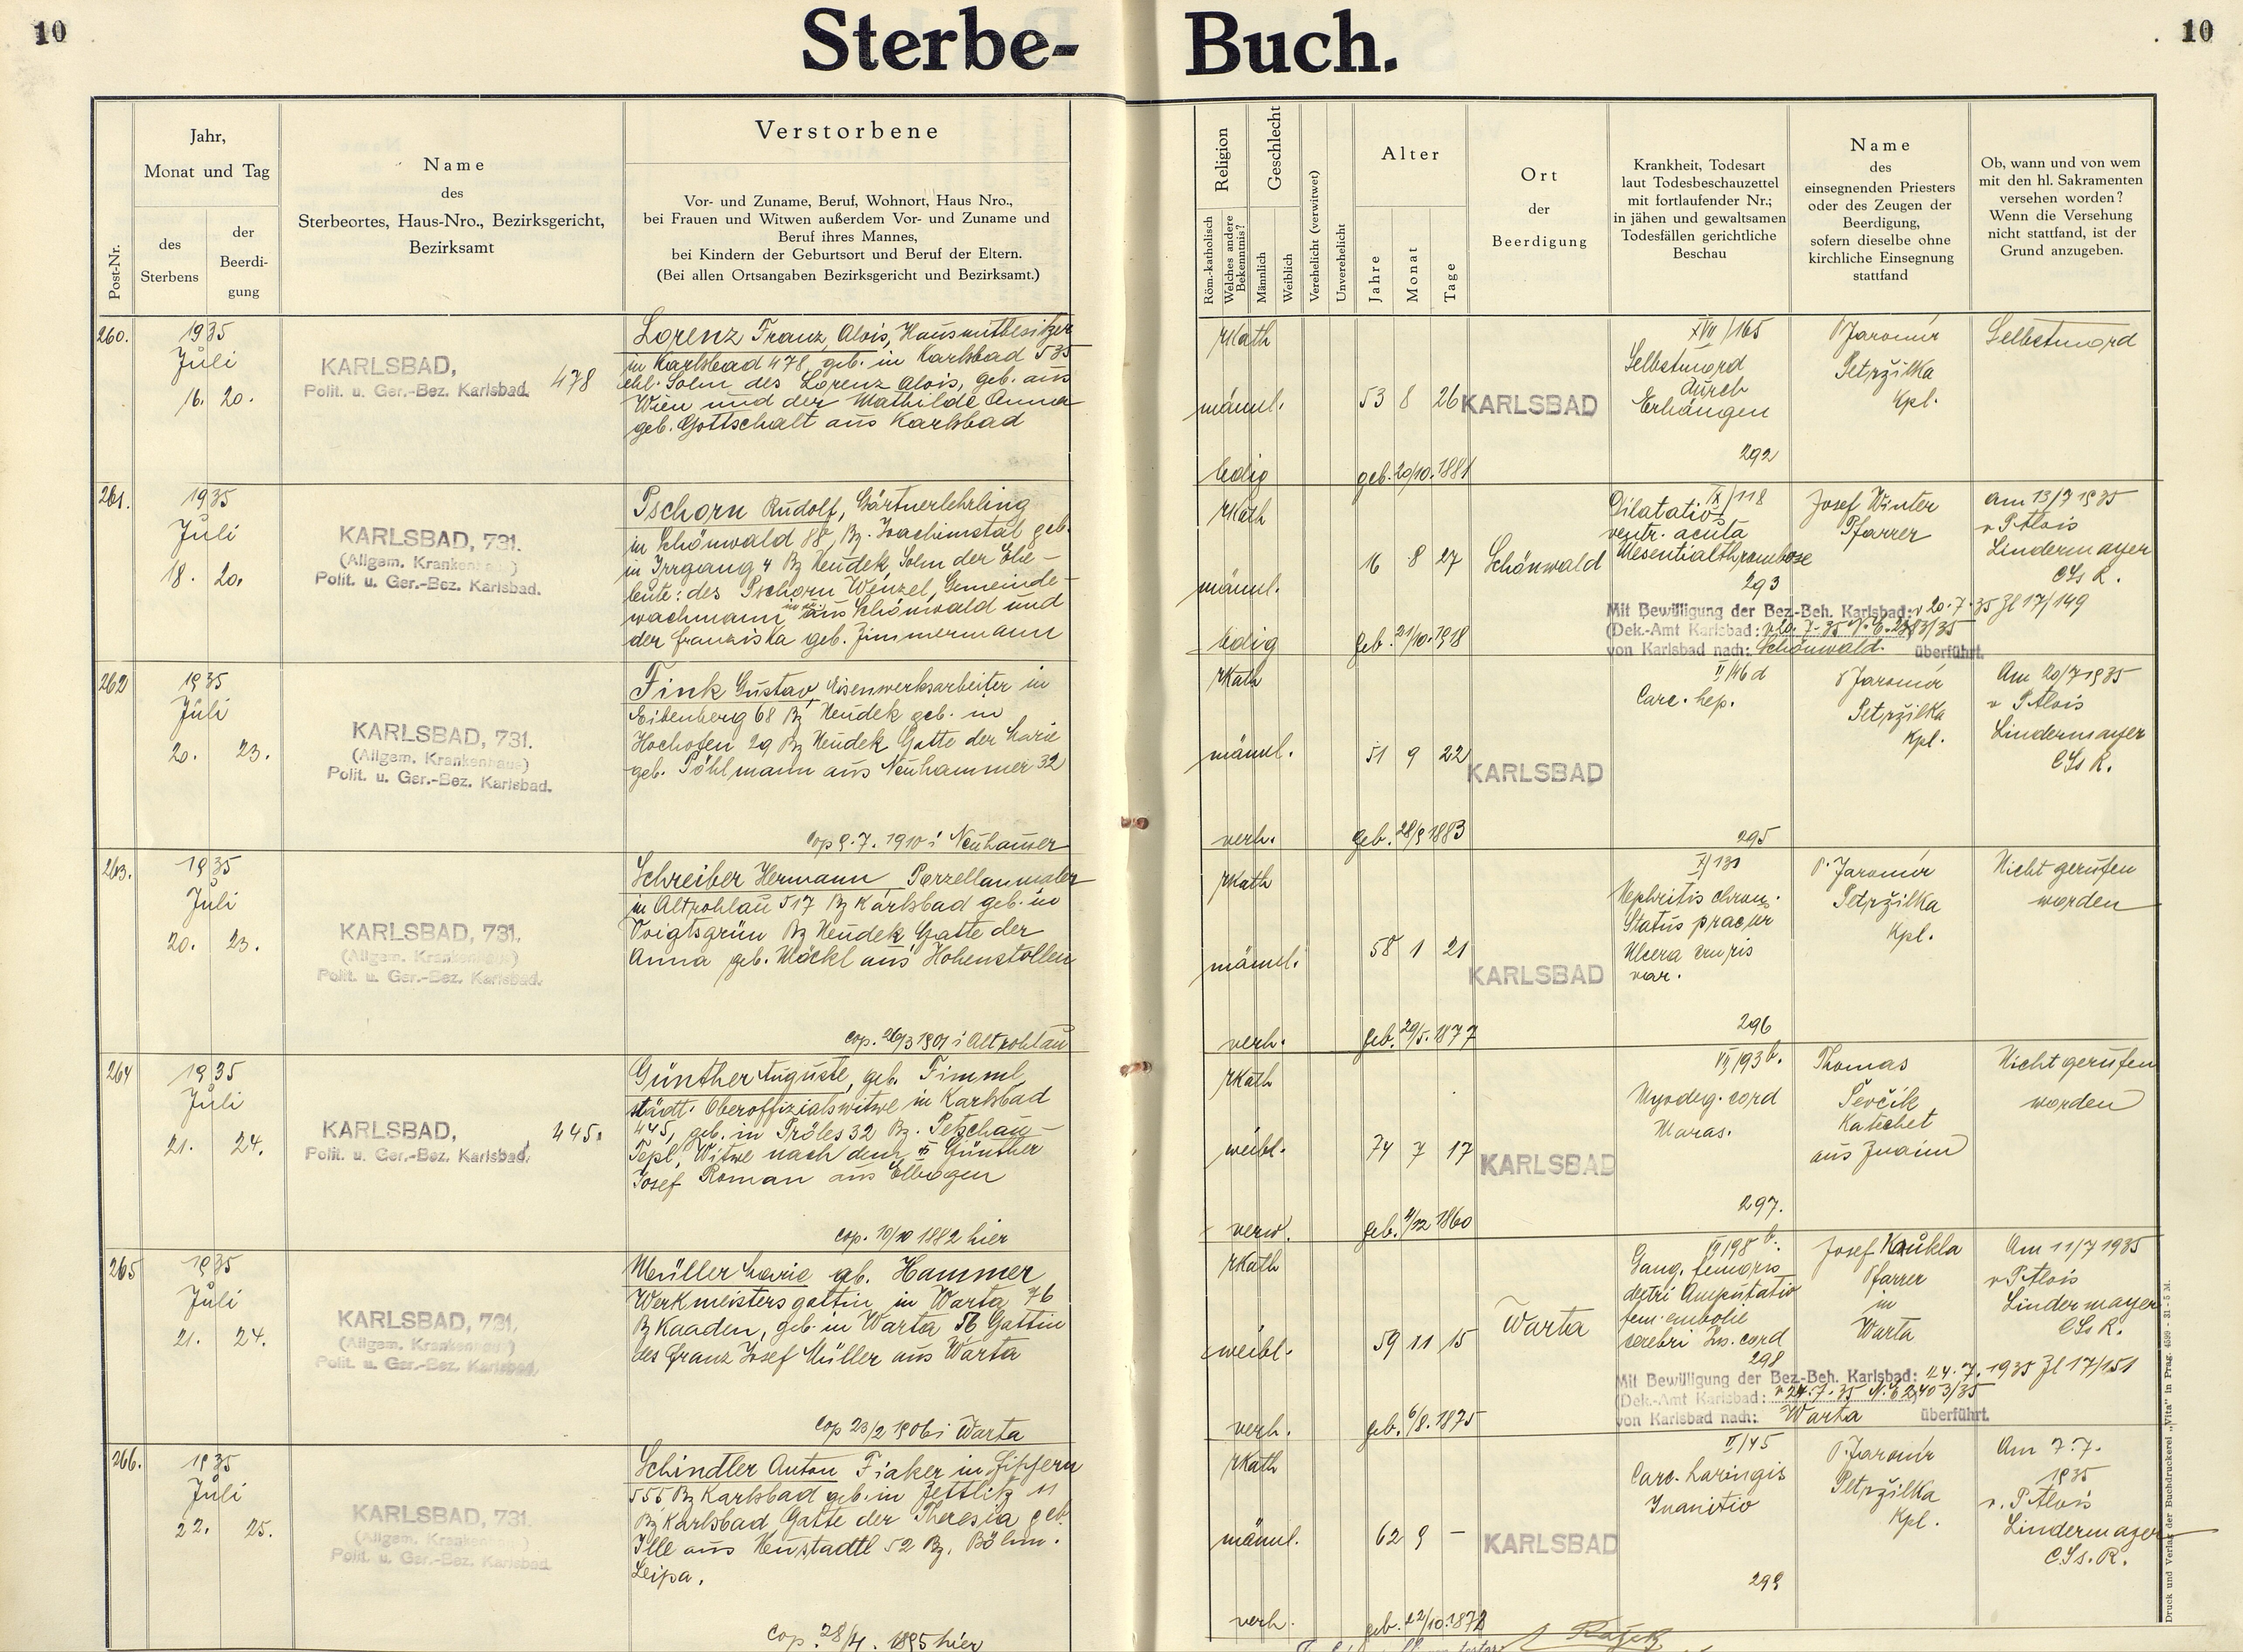 10
Sterbe-
Buch.
10
Post-Nr.
Jahr,
Monat und Tag
des
Sterbens
der
Beerdi-
gung
Name
des
Sterbeortes, Haus-Nro., Bezirksgericht,
Bezirksamt
Verstorbene
Vor- und Zuname, Beruf, Wohnort, Haus Nro.,
bei Frauen und Witwen außerdem Vor- und Zuname und
Beruf ihres Mannes,
bei Kindern der Geburtsort und Beruf der Eltern.
(Bei allen Ortsangaben Bezirksgericht und Bezirksamt.)
Religion
Röm.-katholisch
Welches andere
Bekenntnis?
Geschlecht
Männlich
Weiblich
Verehelicht (verwitwet)
Unverehelicht
Alter
Jahre
Monat
Tage
Ort
der
Beerdigung
Krankheit, Todesart
laut Todesbeschauzettel
mit fortlaufender Nr.;
in jähen und gewaltsamen
Todesfällen gerichtliche
Beschau
Name
des
einsegnenden Priesters
oder des Zeugen der
Beerdigung,
sofern dieselbe ohne
kirchliche Einsegnung
stattfand
Ob, wann und von wem
mit den hl. Sakramenten
versehen worden?
Wenn die Versehung
nicht stattfand, ist der
Grund anzugeben.
260.
1935
Juli
16. 20.
KARLSBAD,
Polit. u. Ger.-Bez. Karlsbad.
478
Lorenz Franz Alois, Hausmitbesitzer
in Karlsbad 478, geb. in Karlsbad 535
ehl. Sohn des Lorenz Alois, geb. aus
Wien und der Mathilde Anna
geb. Gottschalt aus Karlsbad
rkath
männl.
ledig
53 8 26
geb. 20/10. 1881
KARLSBAD
XVII/165
Selbstmord
durch
Erhängen
292
P Jaromir
Petržilka
Kpl.
Selbstmord
261.
1935
Juli
18. 20.
KARLSBAD, 731.
(Allgem. Krankenhaus)
Polit. u. Ger.-Bez. Karlsbad.
Pschorn Rudolf, Gärtnerlehrling
in Schönwald 88, Bz. Joachimstal geb.
in Irrgang 4 Bz Neudek, Sohn der Ehe-
leute: des Pschorn Wenzel, Gemeinde-
wachmann in aus Schönwald und
der Franziska geb. Zimmermann
rkath
männl.
ledig
16 8 27
geb. 21/10. 1918
Schönwald
IX/118
Dilatatio
ventr. acuta
Mesentialthrombose
293
Mit Bewilligung der Bez.-Beh. Karlsbad: v 20.7.35 Zl 17/149
(Dek.-Amt Karlsbad:
von Karlsbad nach: Schönwald. überführt.
Josef Winter
Pfarrer
am 13/7 1935
v P Alois
Lindermayer
CSsR.
262
1935
Juli
20. 23.
KARLSBAD, 731.
(Allgem. Krankenhaus)
Polit. u. Ger.-Bez. Karlsbad.
Fink Gustav, Eisenwerksarbeiter in
Eibenberg 68 Bz Neudek geb. in
Hochofen 29 Bz Neudek Gatte der Marie
geb. Pöhlmann aus Neuhammer 32
cop 9.7. 1910 i Neuhamer
rkath
männl.
verh.
51 9 22
geb. 28/9 1883
KARLSBAD
II/46 d
Carc. hep.
295
P Jaromir
Petržilka
Kpl.
Am 20/7 1935
v P Alois
Lindermayer
CSsR.
263.
1935
Juli
20. 23.
KARLSBAD, 731.
(Allgem. Krankenhaus)
Polit. u. Ger.-Bez. Karlsbad.
Schreiber Hermann Porzellanmaler
in Altrohlau 517 Bz Karlsbad geb. in
Voigtsgrün Bz Neudek Gatte der
Anna geb. Möckl aus Hohenstollen
cop. 26/3 1901 i Altrohlau
rkath
männl.
verh.
58 1 21
geb. 29/5. 1877
KARLSBAD
X/131
Nephritis chron.
Status praeur
Ulcera cruris
var.
296
P. Jaromir
Petržilka
Kpl.
Nicht gerufen
worden
264
1935
Juli
21. 24.
KARLSBAD,
Polit. u. Ger.-Bez. Karlsbad.
445.
Günther Auguste, geb. Timml
städt. Oberoffizialswitwe in Karlsbad
445, geb. in Pröles 32 Bz. Petschau-
Tepl, Witwe nach dem † Günther
Josef Roman aus Elbogen
cop. 10/10 1882 hier
rkath
weibl.
verw.
74 7 17
geb. 4/12 1860
KARLSBAD
VII/93 b.
Myodeg. cord
Maras.
297.
Thomas
Ševčik
Katechet
aus Znaim
Nicht gerufen
worden
265
1935
Juli
21. 24.
KARLSBAD, 731.
(Allgem. Krankenhaus)
Polit. u. Ger.-Bez. Karlsbad.
Müller Marie geb. Hammer
Werkmeistersgattin in Warta 76
Bz Kaaden, geb. in Warta 56 Gattin
des Franz Josef Müller aus Warta
cop 23/2 1906 i Warta
rkath
weibl.
verh.
59 11 15
geb. 6/8. 1875
Warta
VII/98 b.
Gang. femoris
dextri Amputatio
fem. embolie
cerebri Ins. cord
298
Mit Bewilligung der Bez.-Beh. Karlsbad: 24.7. 1935 Zl 17/151
(Dek.-Amt Karlsbad: v 24.7.35 N.E 2403/35
von Karlsbad nach: Warta überführt.
Josef Kaukla
Pfarrer
in
Warta
Am 11/7 1935
v P Alois
Lindermayer
CSsR.
266.
1935
Juli
22. 25.
KARLSBAD, 731.
(Allgem. Krankenhaus)
Polit. u. Ger.-Bez. Karlsbad.
Schindler Anton Fiaker in Fischern
555 Bz Karlsbad geb. in Zettlitz 11
Bz Karlsbad Gatte der Theresia geb.
Ille aus Neustadtl 52 Bz. Böhm.
Leipa.
cop. 28/4. 1895 hier
rkath
männl.
verh.
62 9 –
geb. 22/10. 1872
KARLSBAD
II/45
Carc. Laringis
Inanitio
299
P. Jaromir
Petržilka
Kpl.
Am 7.7.
1935
v. P Alois
Lindermayer
CSs.R.
Druck und Verlag der Buchdruckerei „Vita" in Prag. 4599 - 31 - 5 M.